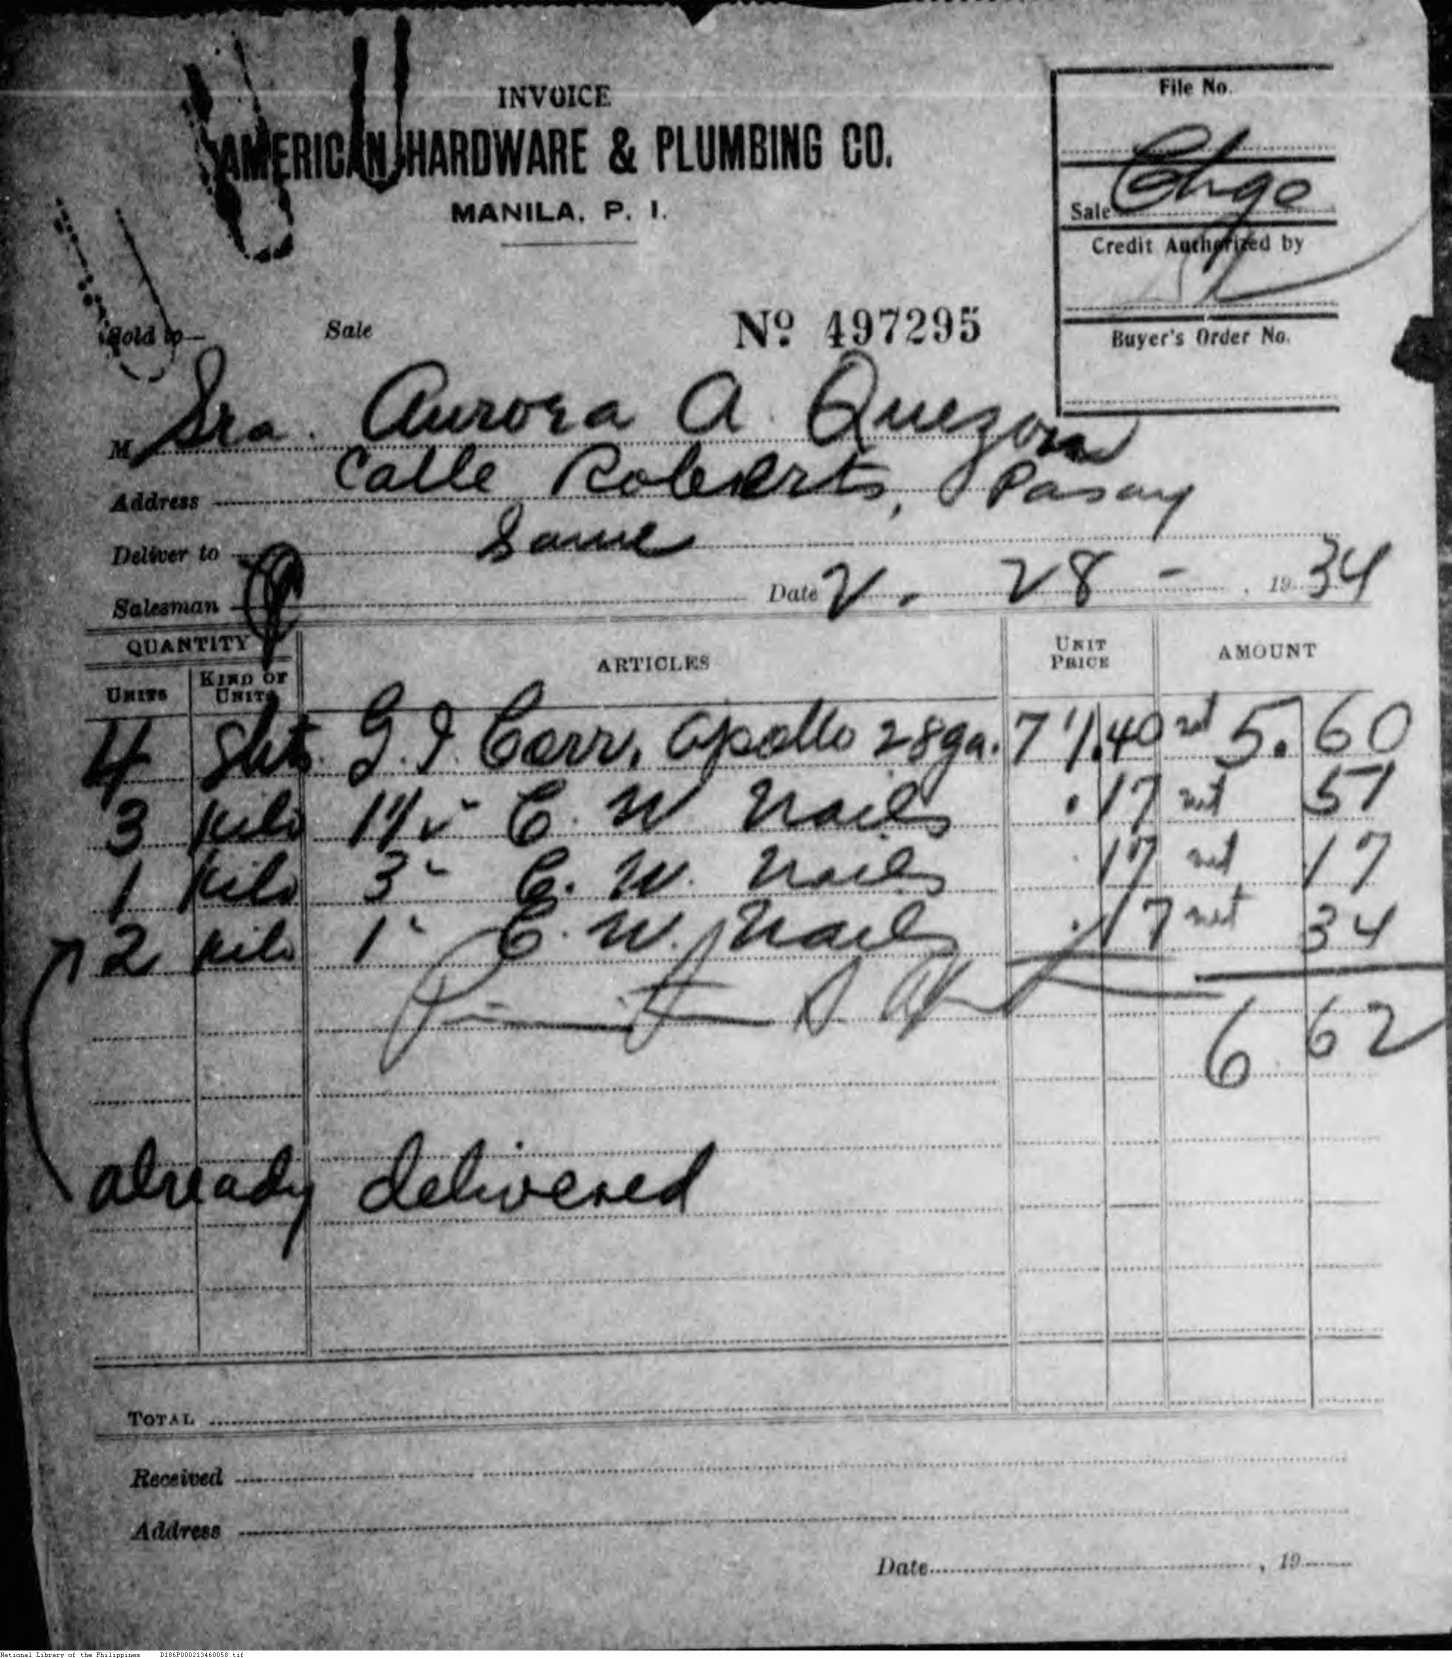 INVOICE
AMERICAN HARDWARE & PLUMBING CO.
MANILA, P. I.
File No.
Sale Chge
Credit Authorized by
Buyer's Order No.
Sold to—
Sale
Nº 497295
M Sra. Aurora A. Quezon
Address Calle Roberts, Pasay
Deliver to Same
Salesman
Date 2. 28 - , 1934
QUANTITY ARTICLES UNIT PRICE AMOUNT
UNITS KIND OF UNITS
4 Shts. G. I. Corr. Apollo 28ga. 7' 1.40 net 5.60
3 kilo 1½" C. W. Nails .17 net 51
1 kilo 3" C. W. Nails .17 net 17
2 kilo 1" C. W. Nails .17 net 34
6.62
already delivered
TOTAL
Received
Address
Date , 19
National Library of the Philippines D186P000213460058.tif